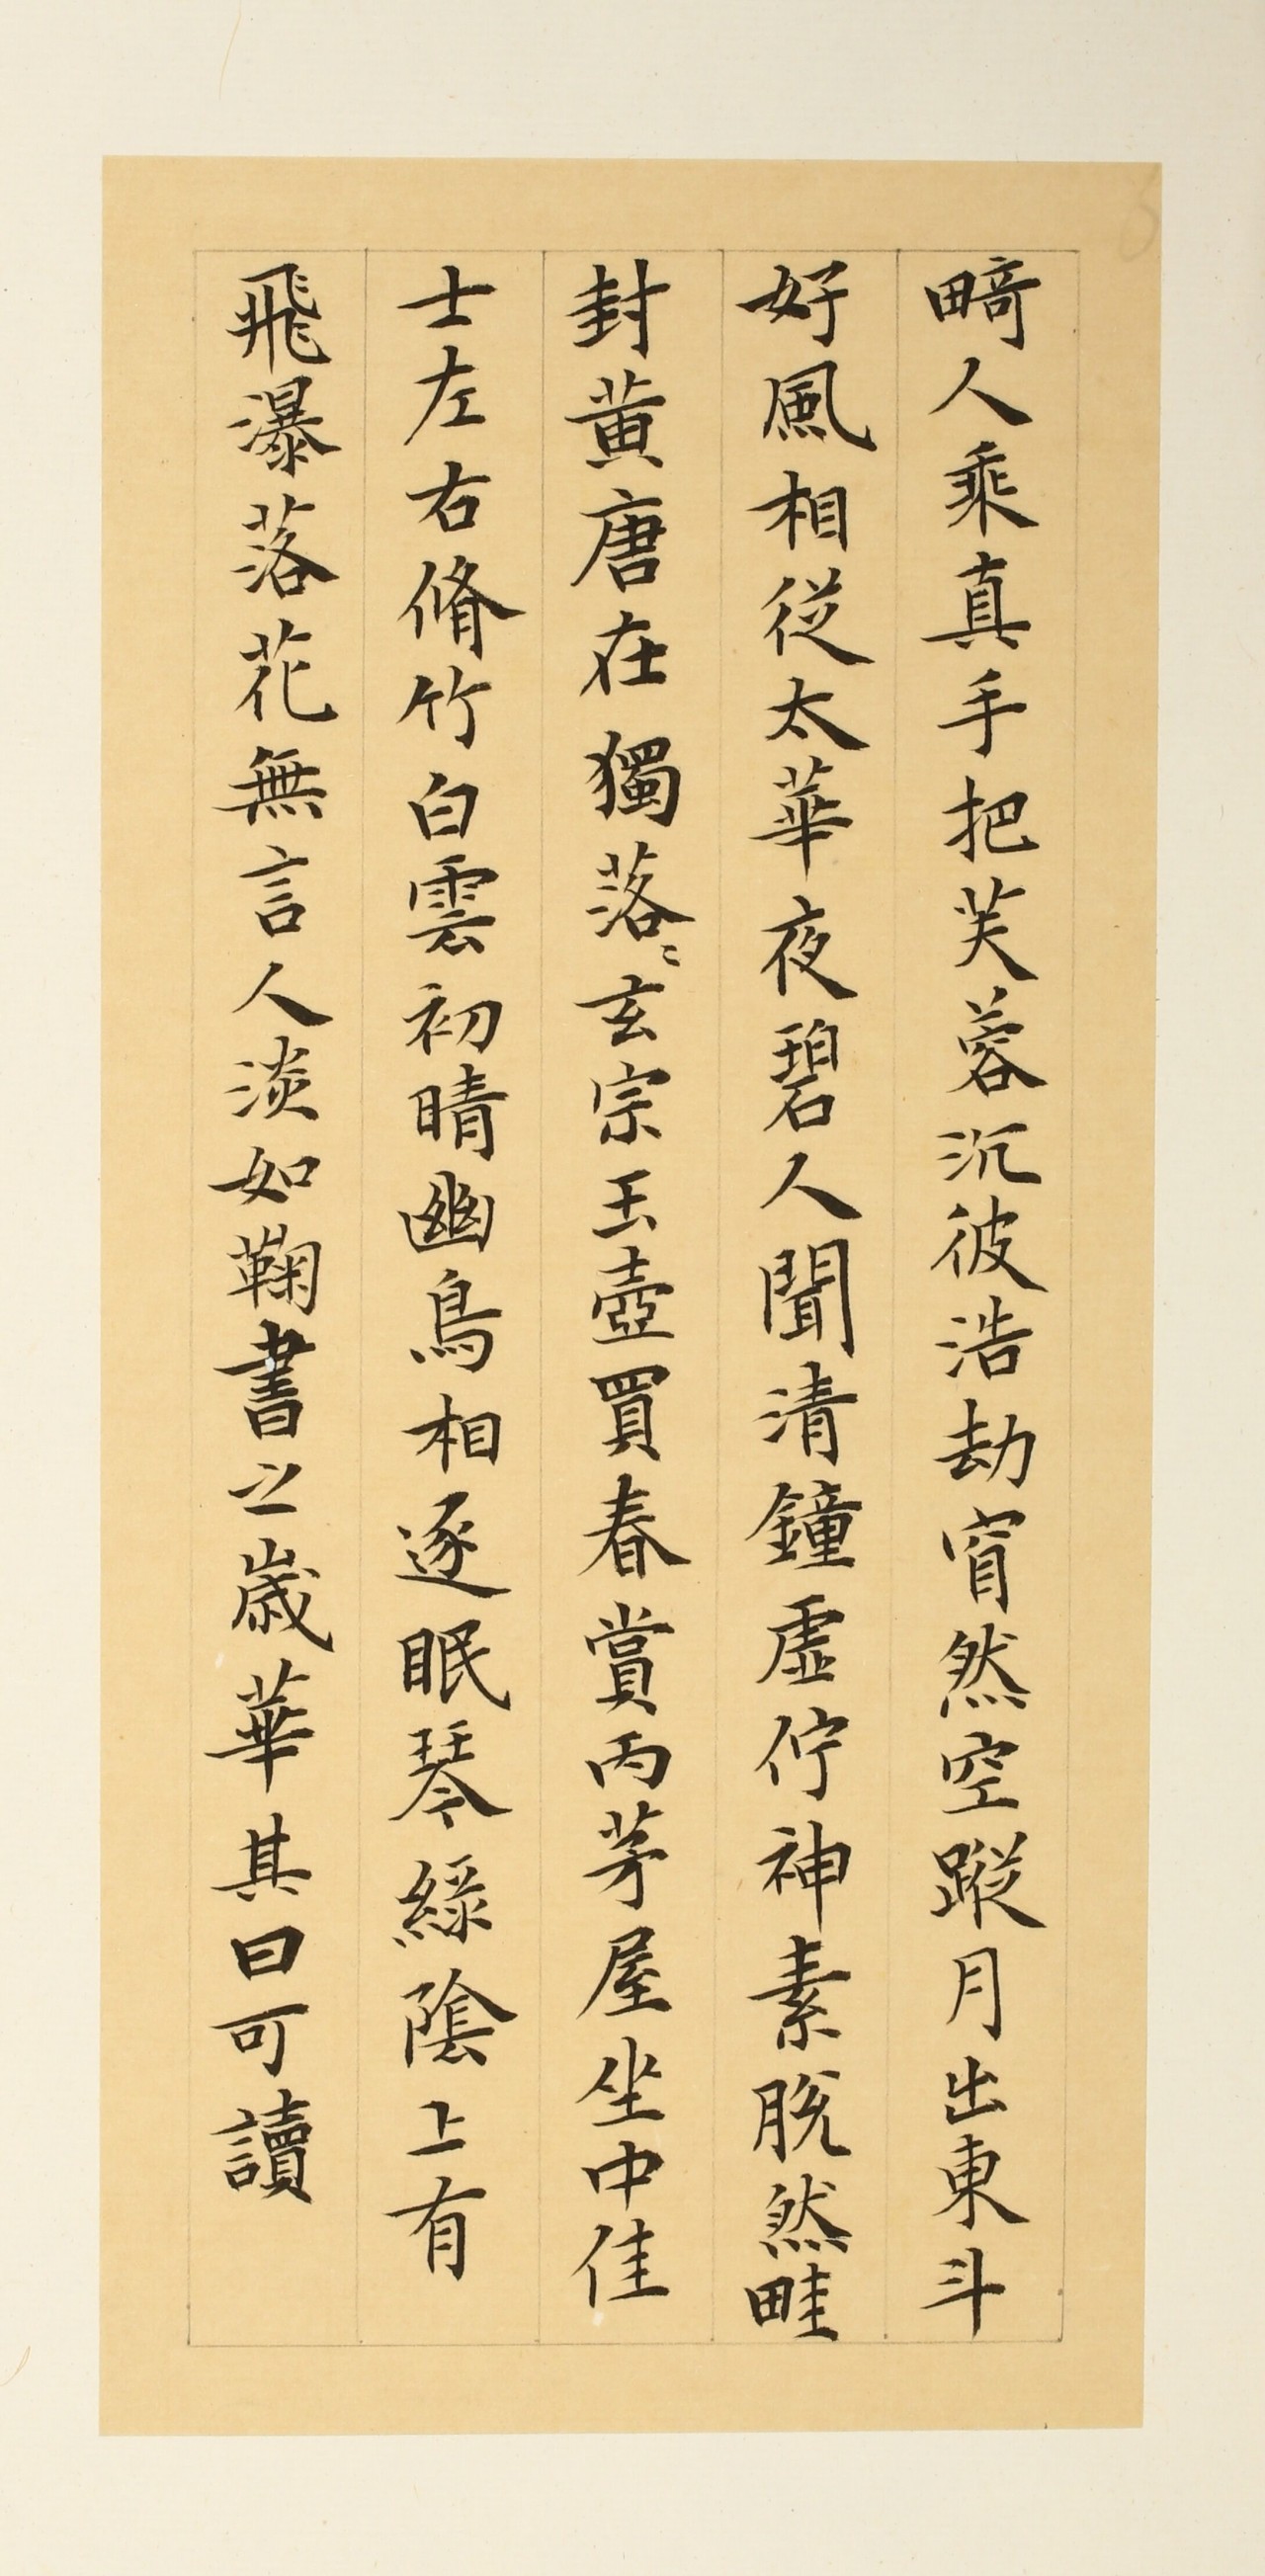 畸人乘真手把芙蓉沉彼浩劫窅然空蹤月出東斗
好風相從太華夜碧人聞清鐘虛佇神素脫然畦
封黃唐在獨落々玄宗玉壺買春賞雨茅屋坐中佳
士左右脩竹白雲初晴幽鳥相逐眠琴綠陰上有
飛瀑落花無言人淡如鞠書之歲華其曰可讀